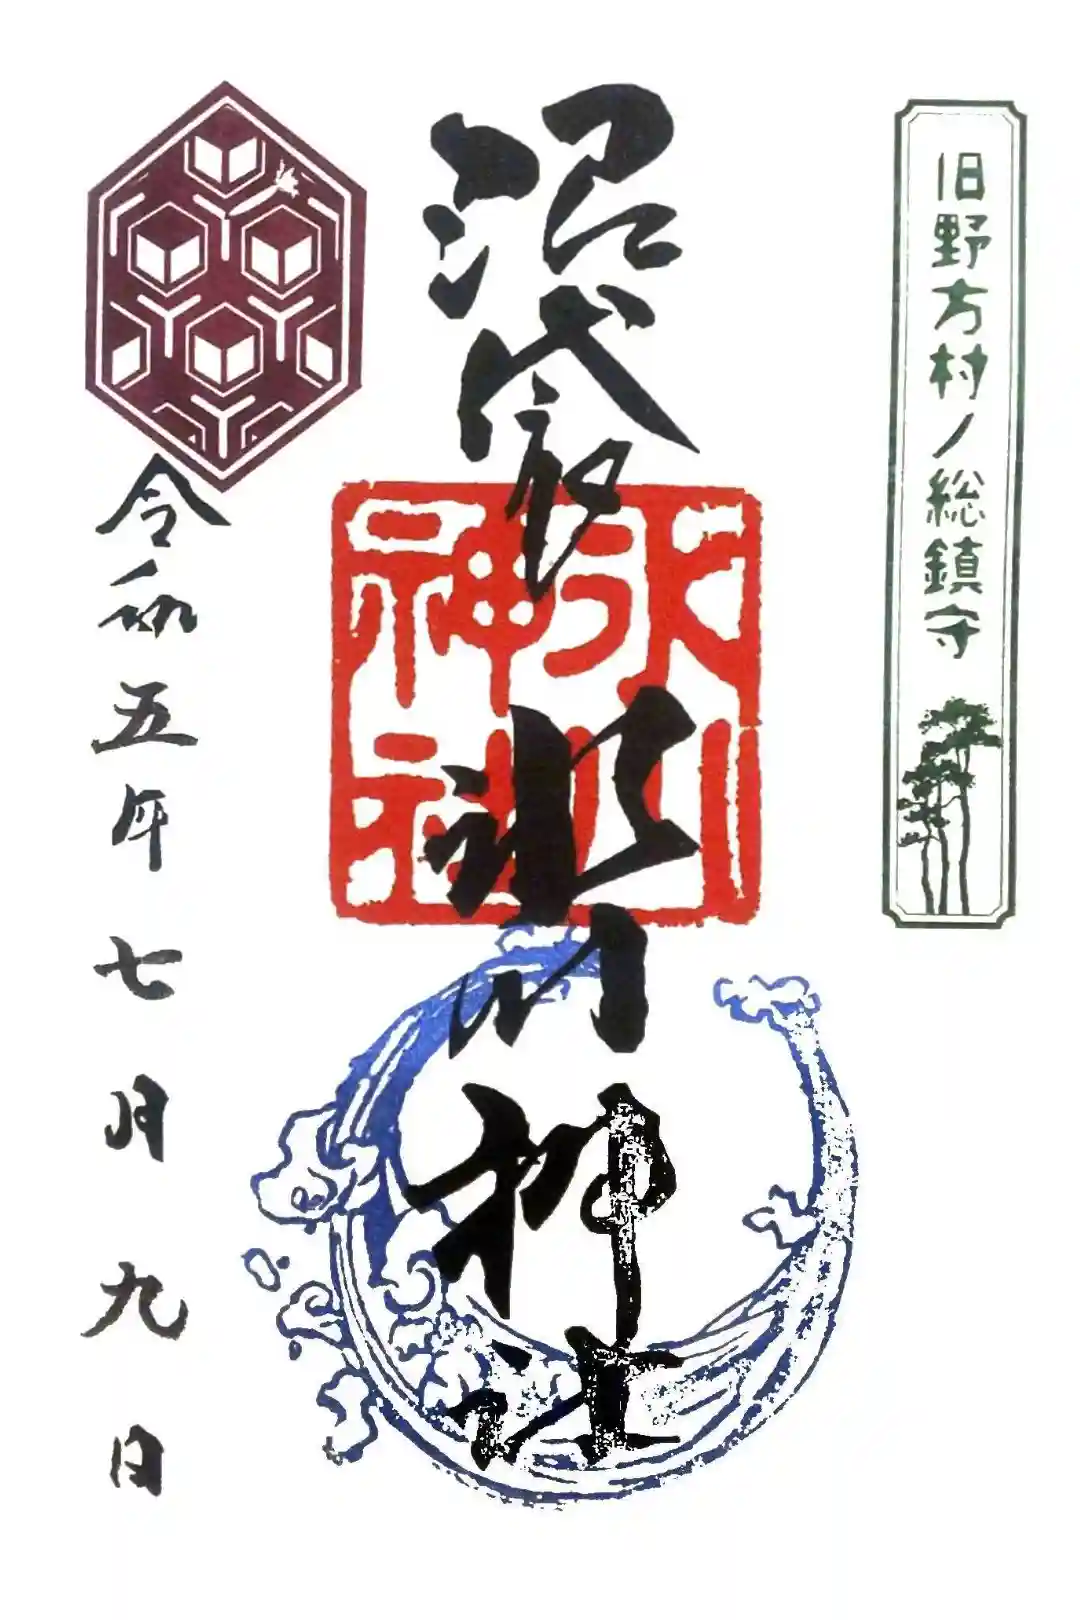 旧野方村ノ総鎮守
沼袋氷川神社
氷川
神社
令和五年七月九日